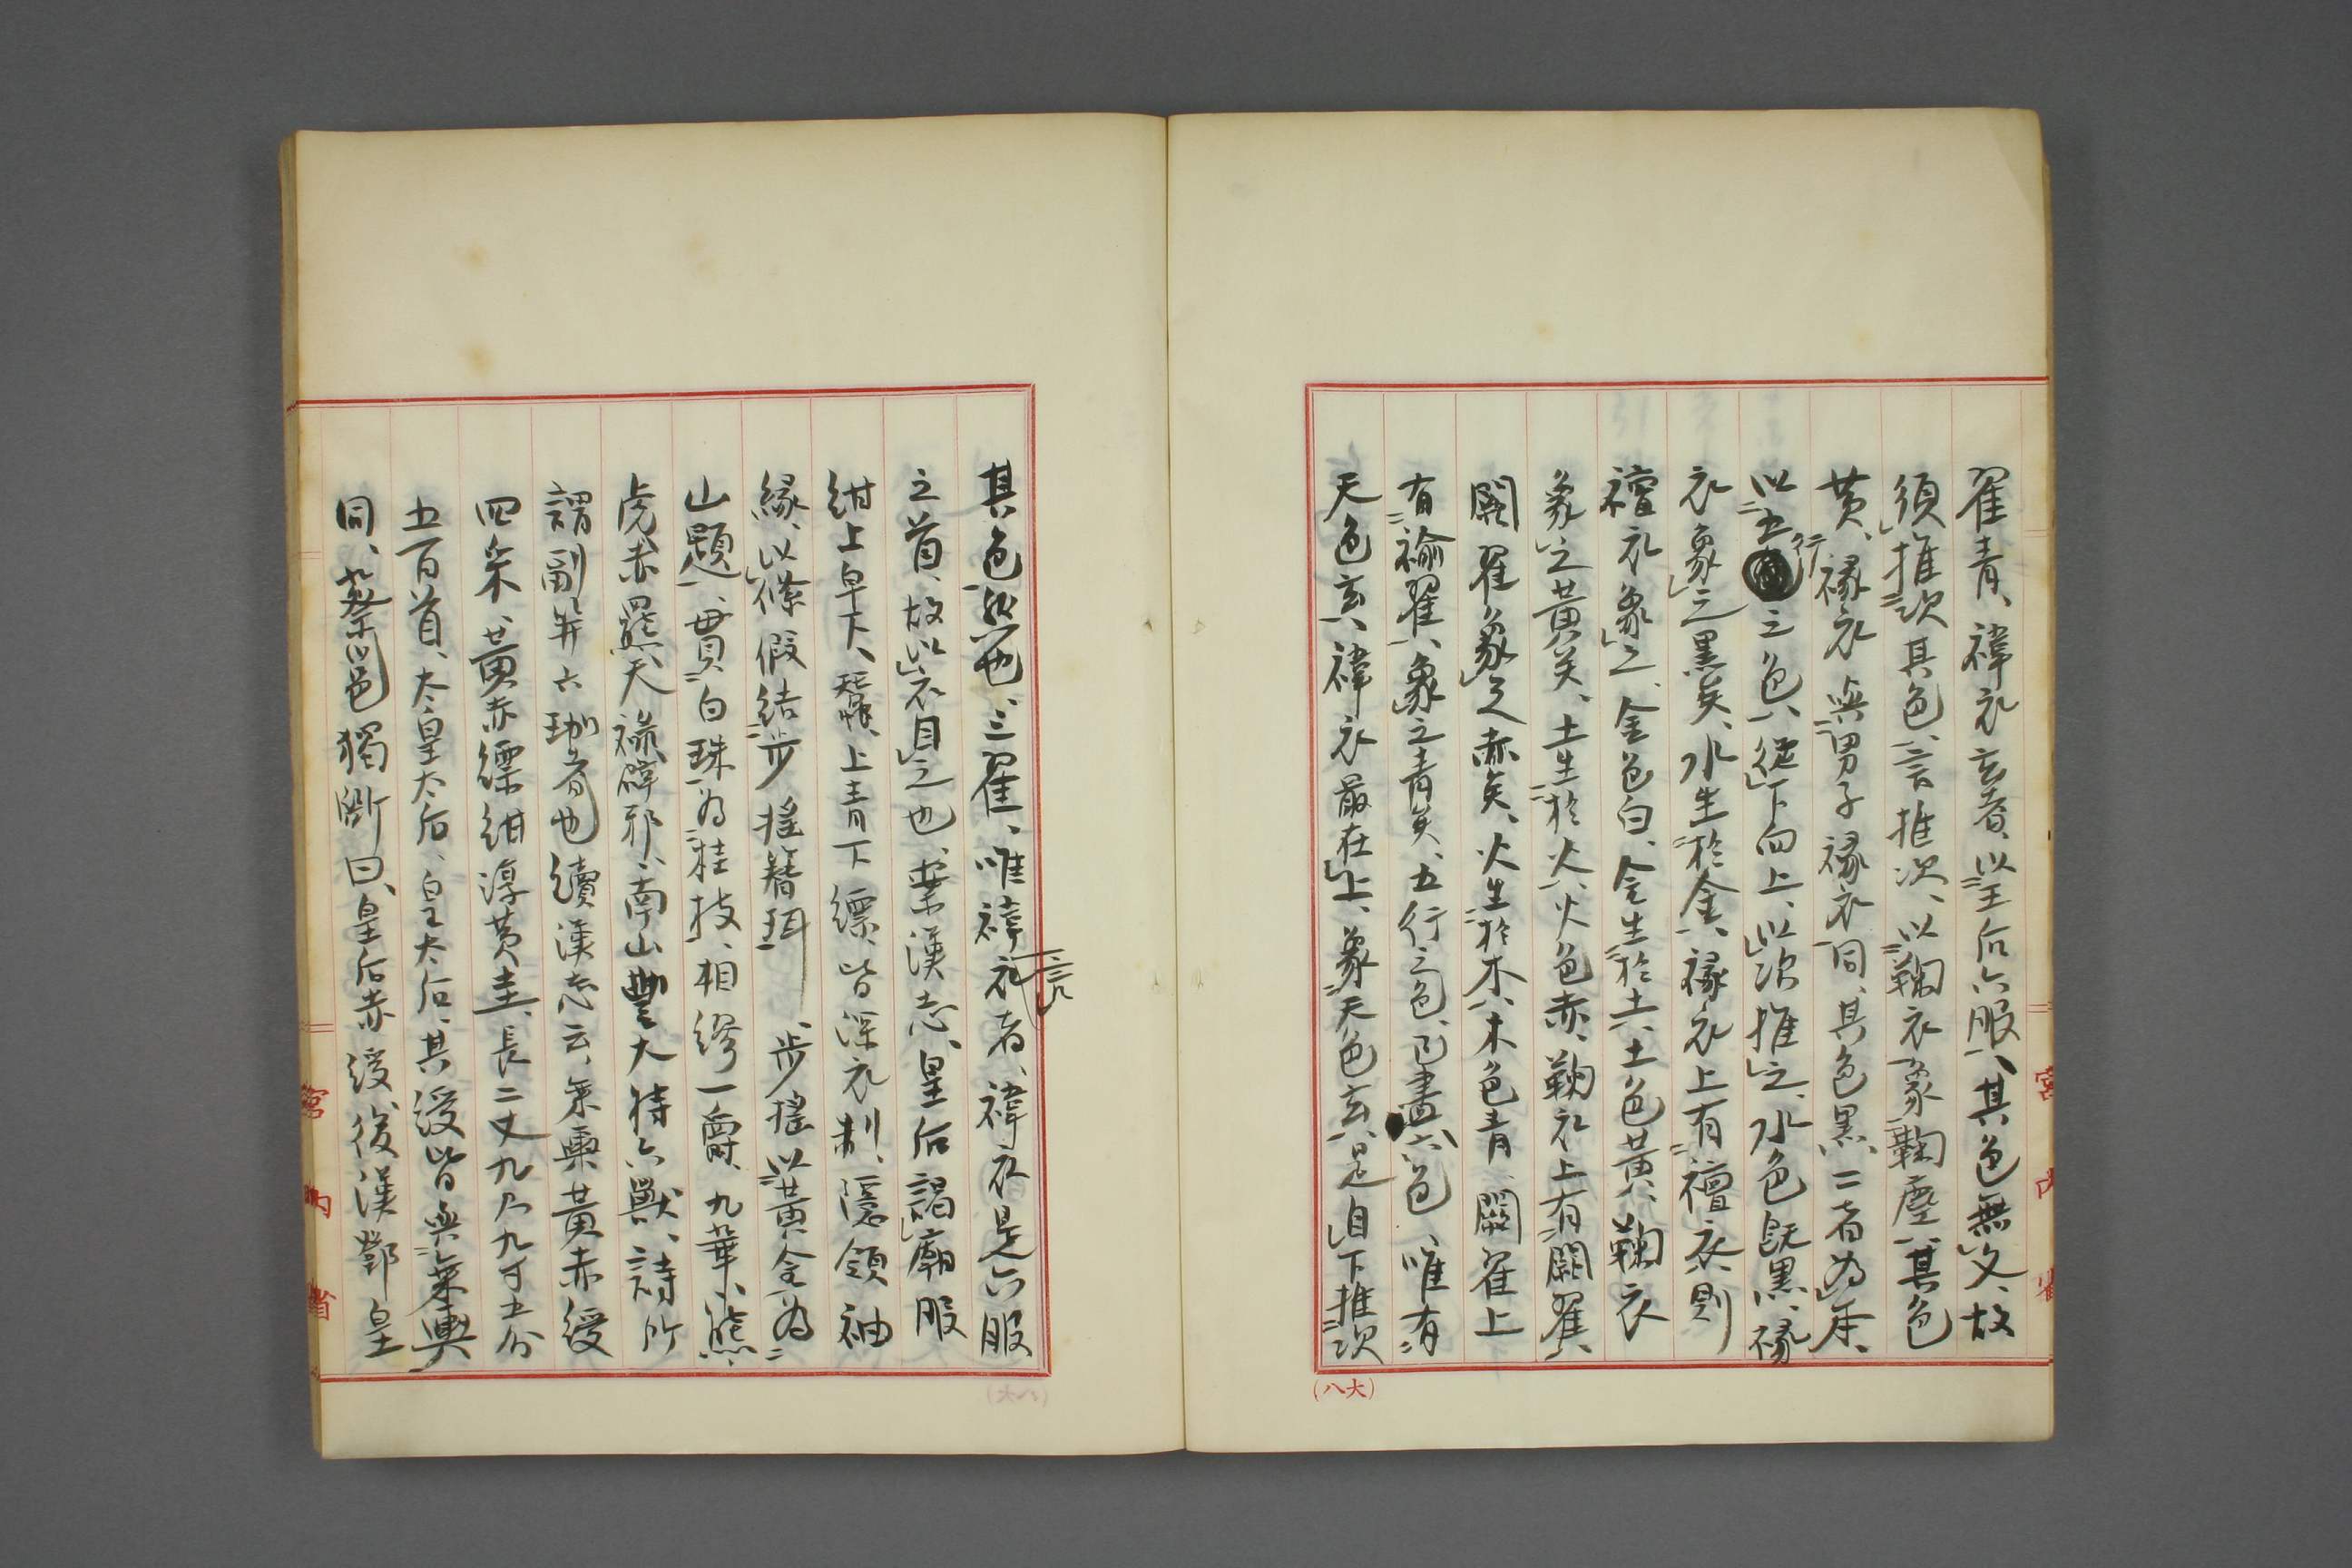 翟青、褘衣玄者、以王后六服、其色無文、故
須推次其色、言推次、以鞠衣象鞠塵、其色
黄、褖衣與男子褖衣同、其色黒、二者為本、
以五行之色、從下向上、以次推之、水色既黒、褖
衣象之黒矣、水生於金、褖衣上有襢衣、則
襢衣象之、金色白、金生於土、土色黄、鞠衣
象之黄矣、土生於火、火色赤、鞠衣上有闕翟、
闕翟象之赤矣、火生於木、木色青、闕翟上
有褕翟、象之青矣、五行之色已盡六色、唯有
天色玄、褘衣最在上、象天色玄、是自下推次
其色然也、三翟、唯褘衣者、褘衣是六服
之首、故以衣目之也、案漢志、皇后謁廟服
紺上皁下、蠶、上青下縹、皆深衣制、隱領袖
緣、以絛假結步搖簪珥、步搖以黄金為
山題、貫白珠為桂枝、相繆一爵、九華、熊
虎赤羆天禄辟邪、南山豐大特六獣、詩所
謂副笄六珈者也續漢志云、乗輿黄赤綬
四采、黄赤縹紺淳黄圭、長二丈九尺九寸五分
五百首、太皇太后、皇太后、其綬皆與乗輿
同、蔡邕獨斷曰、皇后赤綬、後漢鄧皇
宮内省
宮内省
(八大)